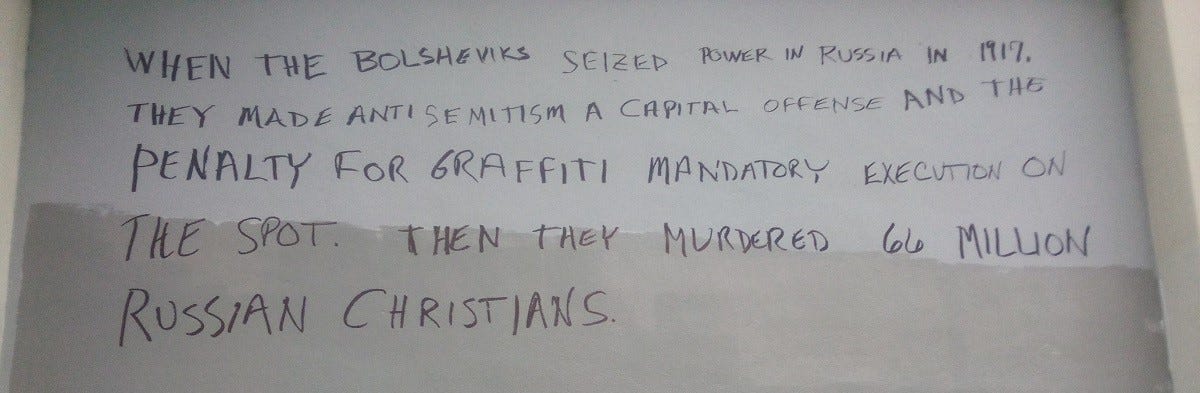 WHEN THE BOLSHEVIKS SEIZED POWER IN RUSSIA IN 1917.
THEY MADE ANTISEMITISM A CAPITAL OFFENSE AND THE
PENALTY FOR GRAFFITI MANDATORY EXECUTION ON
THE SPOT. THEN THEY MURDERED 66 MILLION
RUSSIAN CHRISTIANS.